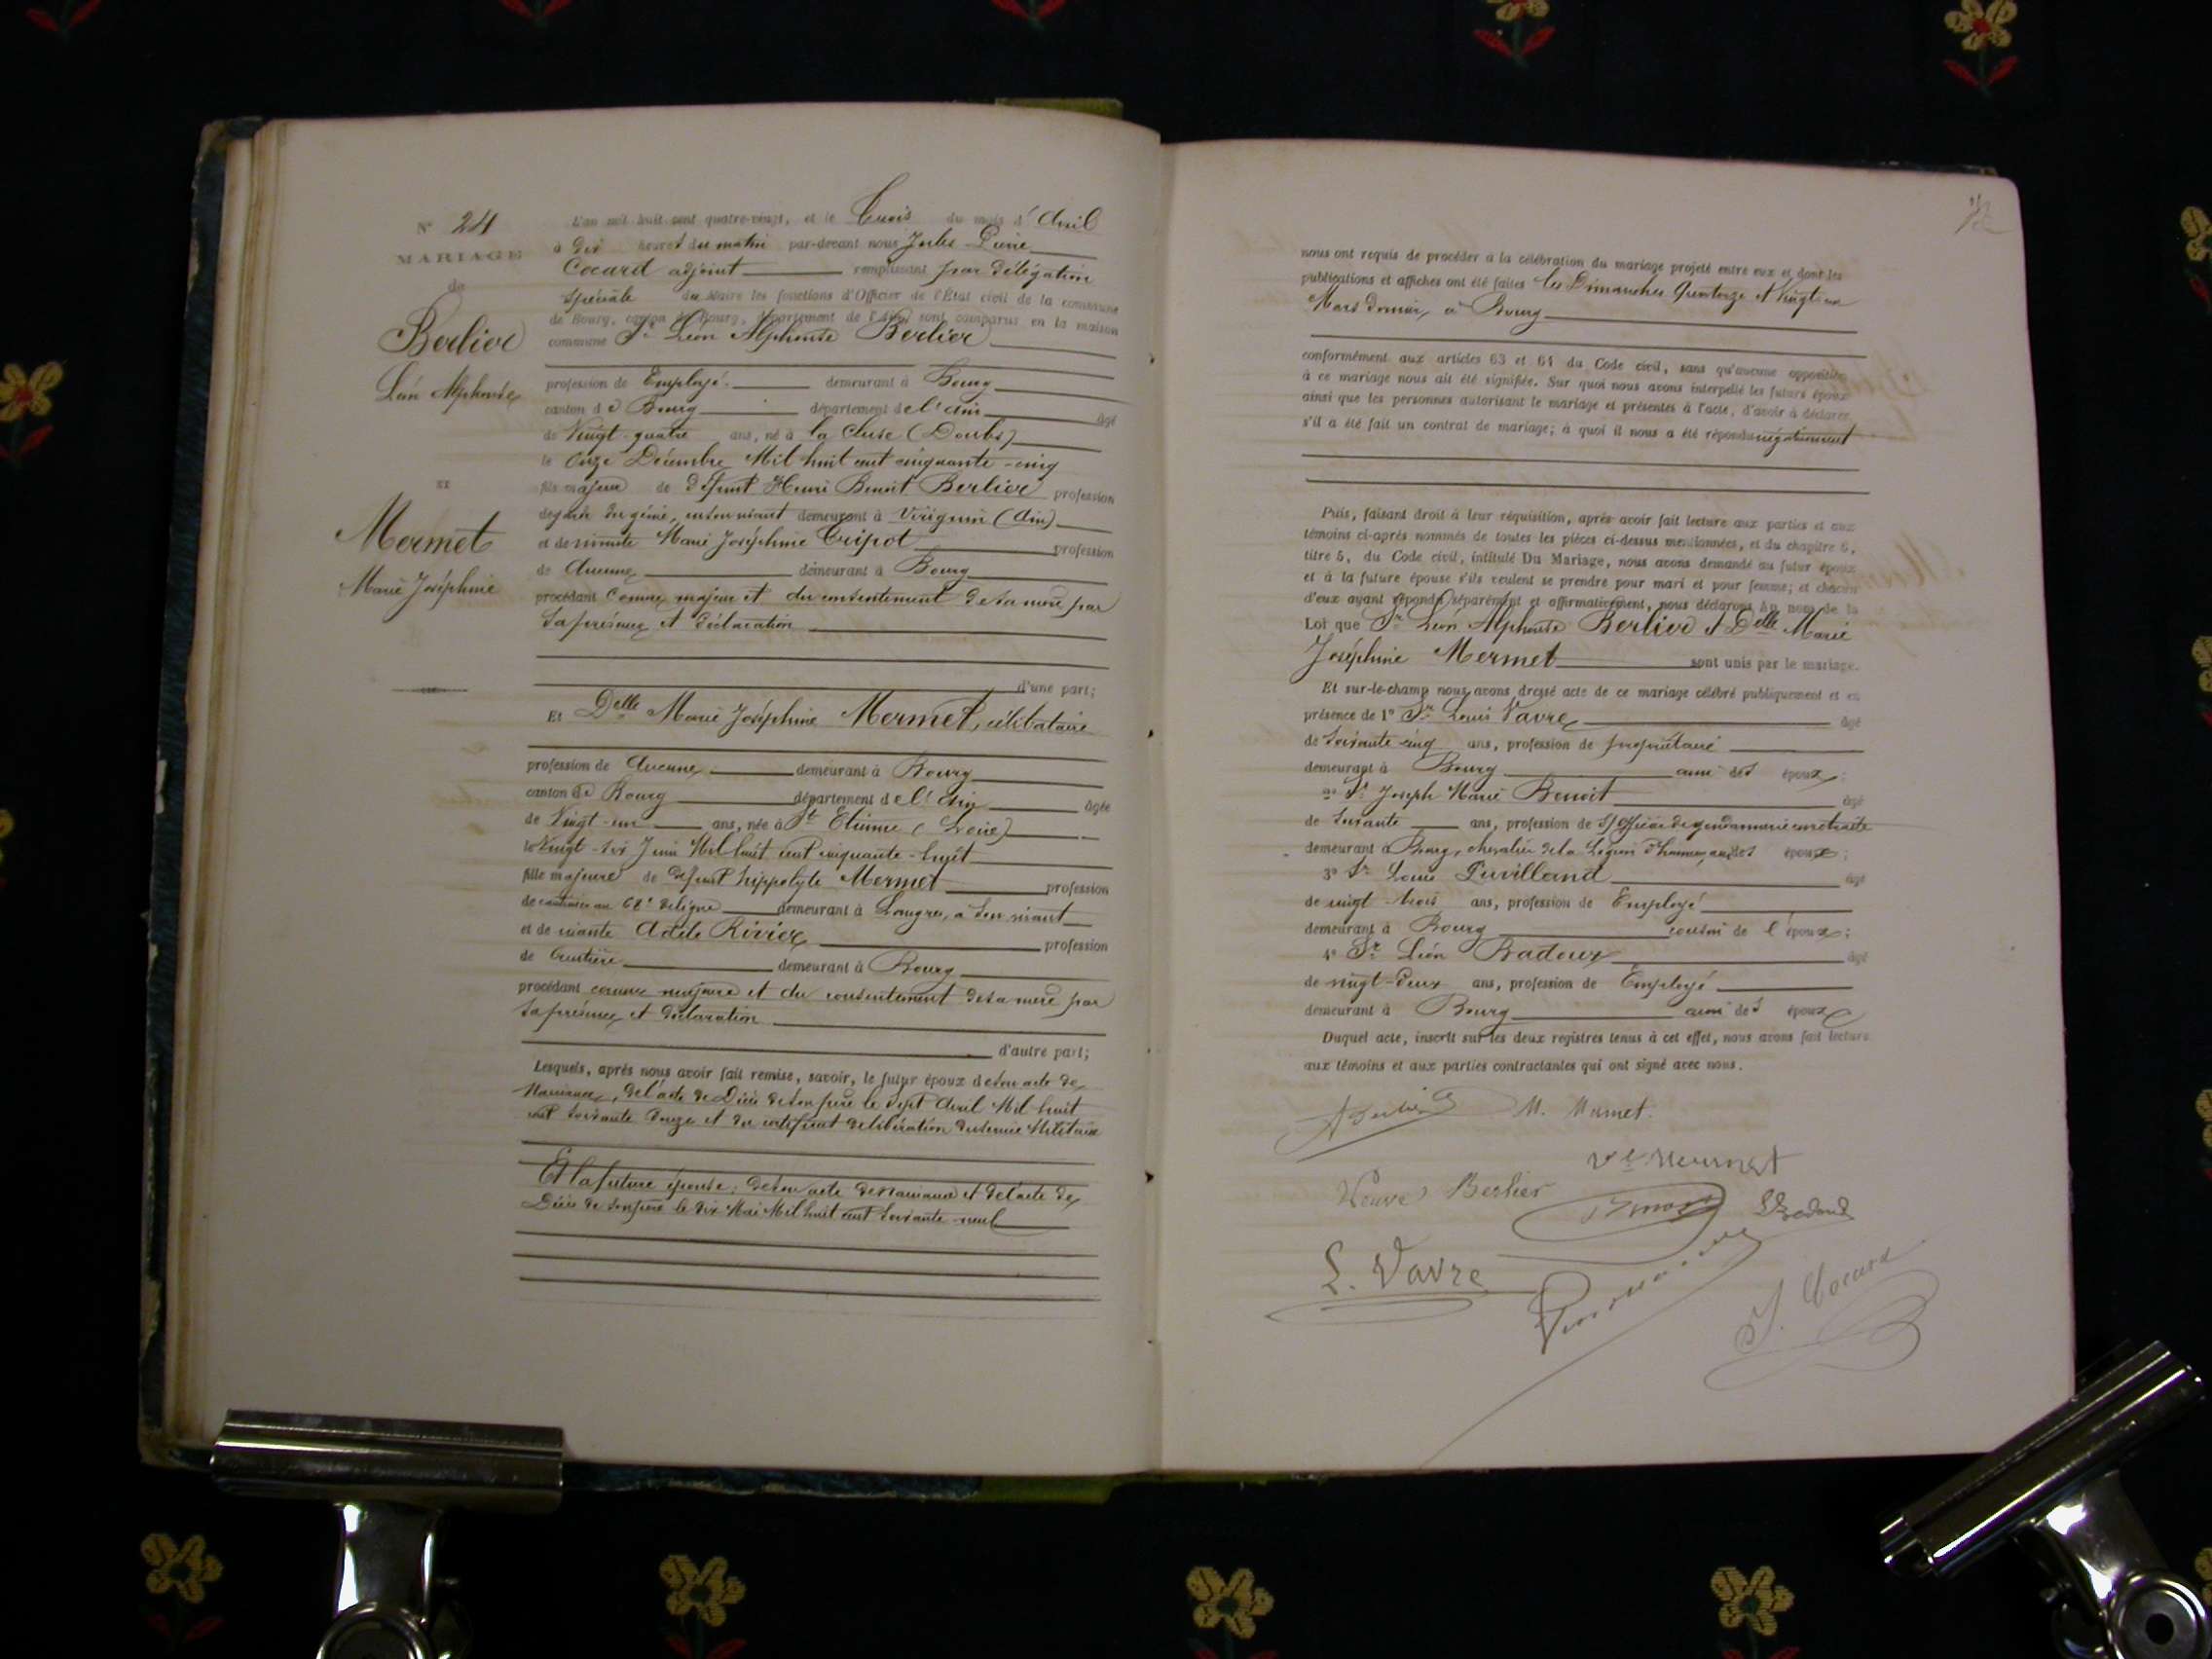 N° 24
MARIAGE
de
Berlier
Léon Alphonse
ET
Mermet
Marie Joséphine
L'an mil huit cent quatre-vingt, et le Trois du mois d'Avril
à dix heures du matin par-devant nous Jules-Pierre
Cocard adjoint remplissant par délégation
spéciale du Maire les fonctions d'Officier de l'État civil de la commune
de Bourg, canton de Bourg, département de l'Ain, sont comparus en la maison
commune Sr Léon Alphonse Berlier
profession de Employé demeurant à Bourg
canton de Bourg département de l'Ain âgé
de Vingt-quatre ans, né à la Cluse (Doubs)
le Onze Décembre Mil huit cent cinquante-cinq
fils majeur de défunt Henri Benoit Berlier profession
de garde du génie, en son vivant demeurant à Virignin (Ain)
et de vivante Marie Joséphine Tripot profession
de Aucune demeurant à Bourg
procédant comme majeur et du consentement de sa mère par
sa présence et déclaration
d'une part;
Et Delle Marie Joséphine Mermet, célibataire
profession de Aucune demeurant à Bourg
canton de Bourg département de l'Ain âgée
de Vingt-un ans, née à St Etienne (Loire)
le Vingt-six Juin Mil huit cent cinquante-huit
fille majeure de défunt hippolyte Mermet profession
de au 68e de ligne demeurant à Langres, à son vivant
et de vivante Adèle Rivier profession
de demeurant à Bourg
procédant comme majeure et du consentement de sa mère par
sa présence et déclaration
d'autre part;
Lesquels, après nous avoir fait remise, savoir, le futur époux de son acte de
Naissance, de l'acte de Décès de son père le sept Avril Mil huit
cent soixante douze et du certificat de libération du service Militaire
Et la future épouse: de son acte de naissance et de l'acte de
Décès de son père le dix Mai Mil huit cent soixante-neuf
nous ont requis de procéder à la célébration du mariage projeté entre eux et dont les
publications et affiches ont été faites les Dimanches Quatorze et Vingt-un
Mars dernier, à Bourg
conformément aux articles 63 et 64 du Code civil, sans qu'aucune opposition
à ce mariage nous ait été signifiée. Sur quoi nous avons interpellé les futurs époux
ainsi que les personnes autorisant le mariage et présentes à l'acte, d'avoir à déclarer
s'il a été fait un contrat de mariage; à quoi il nous a été répondu négativement
Puis, faisant droit à leur réquisition, après avoir fait lecture aux parties et aux
témoins ci-après nommés de toutes les pièces ci-dessus mentionnées, et du chapitre 6,
titre 5, du Code civil, intitulé Du Mariage, nous avons demandé au futur époux
et à la future épouse s'ils veulent se prendre pour mari et pour femme; et chacun
d'eux ayant répondu séparément et affirmativement, nous déclarons au nom de la
Loi que Sr Léon Alphonse Berlier et Delle Marie
Joséphine Mermet sont unis par le mariage.
Et sur-le-champ nous avons dressé acte de ce mariage célébré publiquement et en
présence de 1° Sr Louis Vavre âgé
de soixante-cinq ans, profession de propriétaire
demeurant à Bourg ami des époux;
2° Sr Joseph Marie Benoit âgé
de soixante ans, profession de S/Officier de gendarmerie en retraite
demeurant à Bourg, chevalier de la Légion d'honneur, ami des époux;
3° Sr Louis Puvilland âgé
de vingt-trois ans, profession de Employé
demeurant à Bourg cousin de l'époux;
4° Sr Léon Badoux âgé
de vingt-deux ans, profession de Employé
demeurant à Bourg ami des époux
Duquel acte, inscrit sur les deux registres tenus à cet effet, nous avons fait lecture
aux témoins et aux parties contractantes qui ont signé avec nous.
A Berlier M. Mermet.
Ve Mermet
Veuve Berlier
L. Vavre
J. Cocard